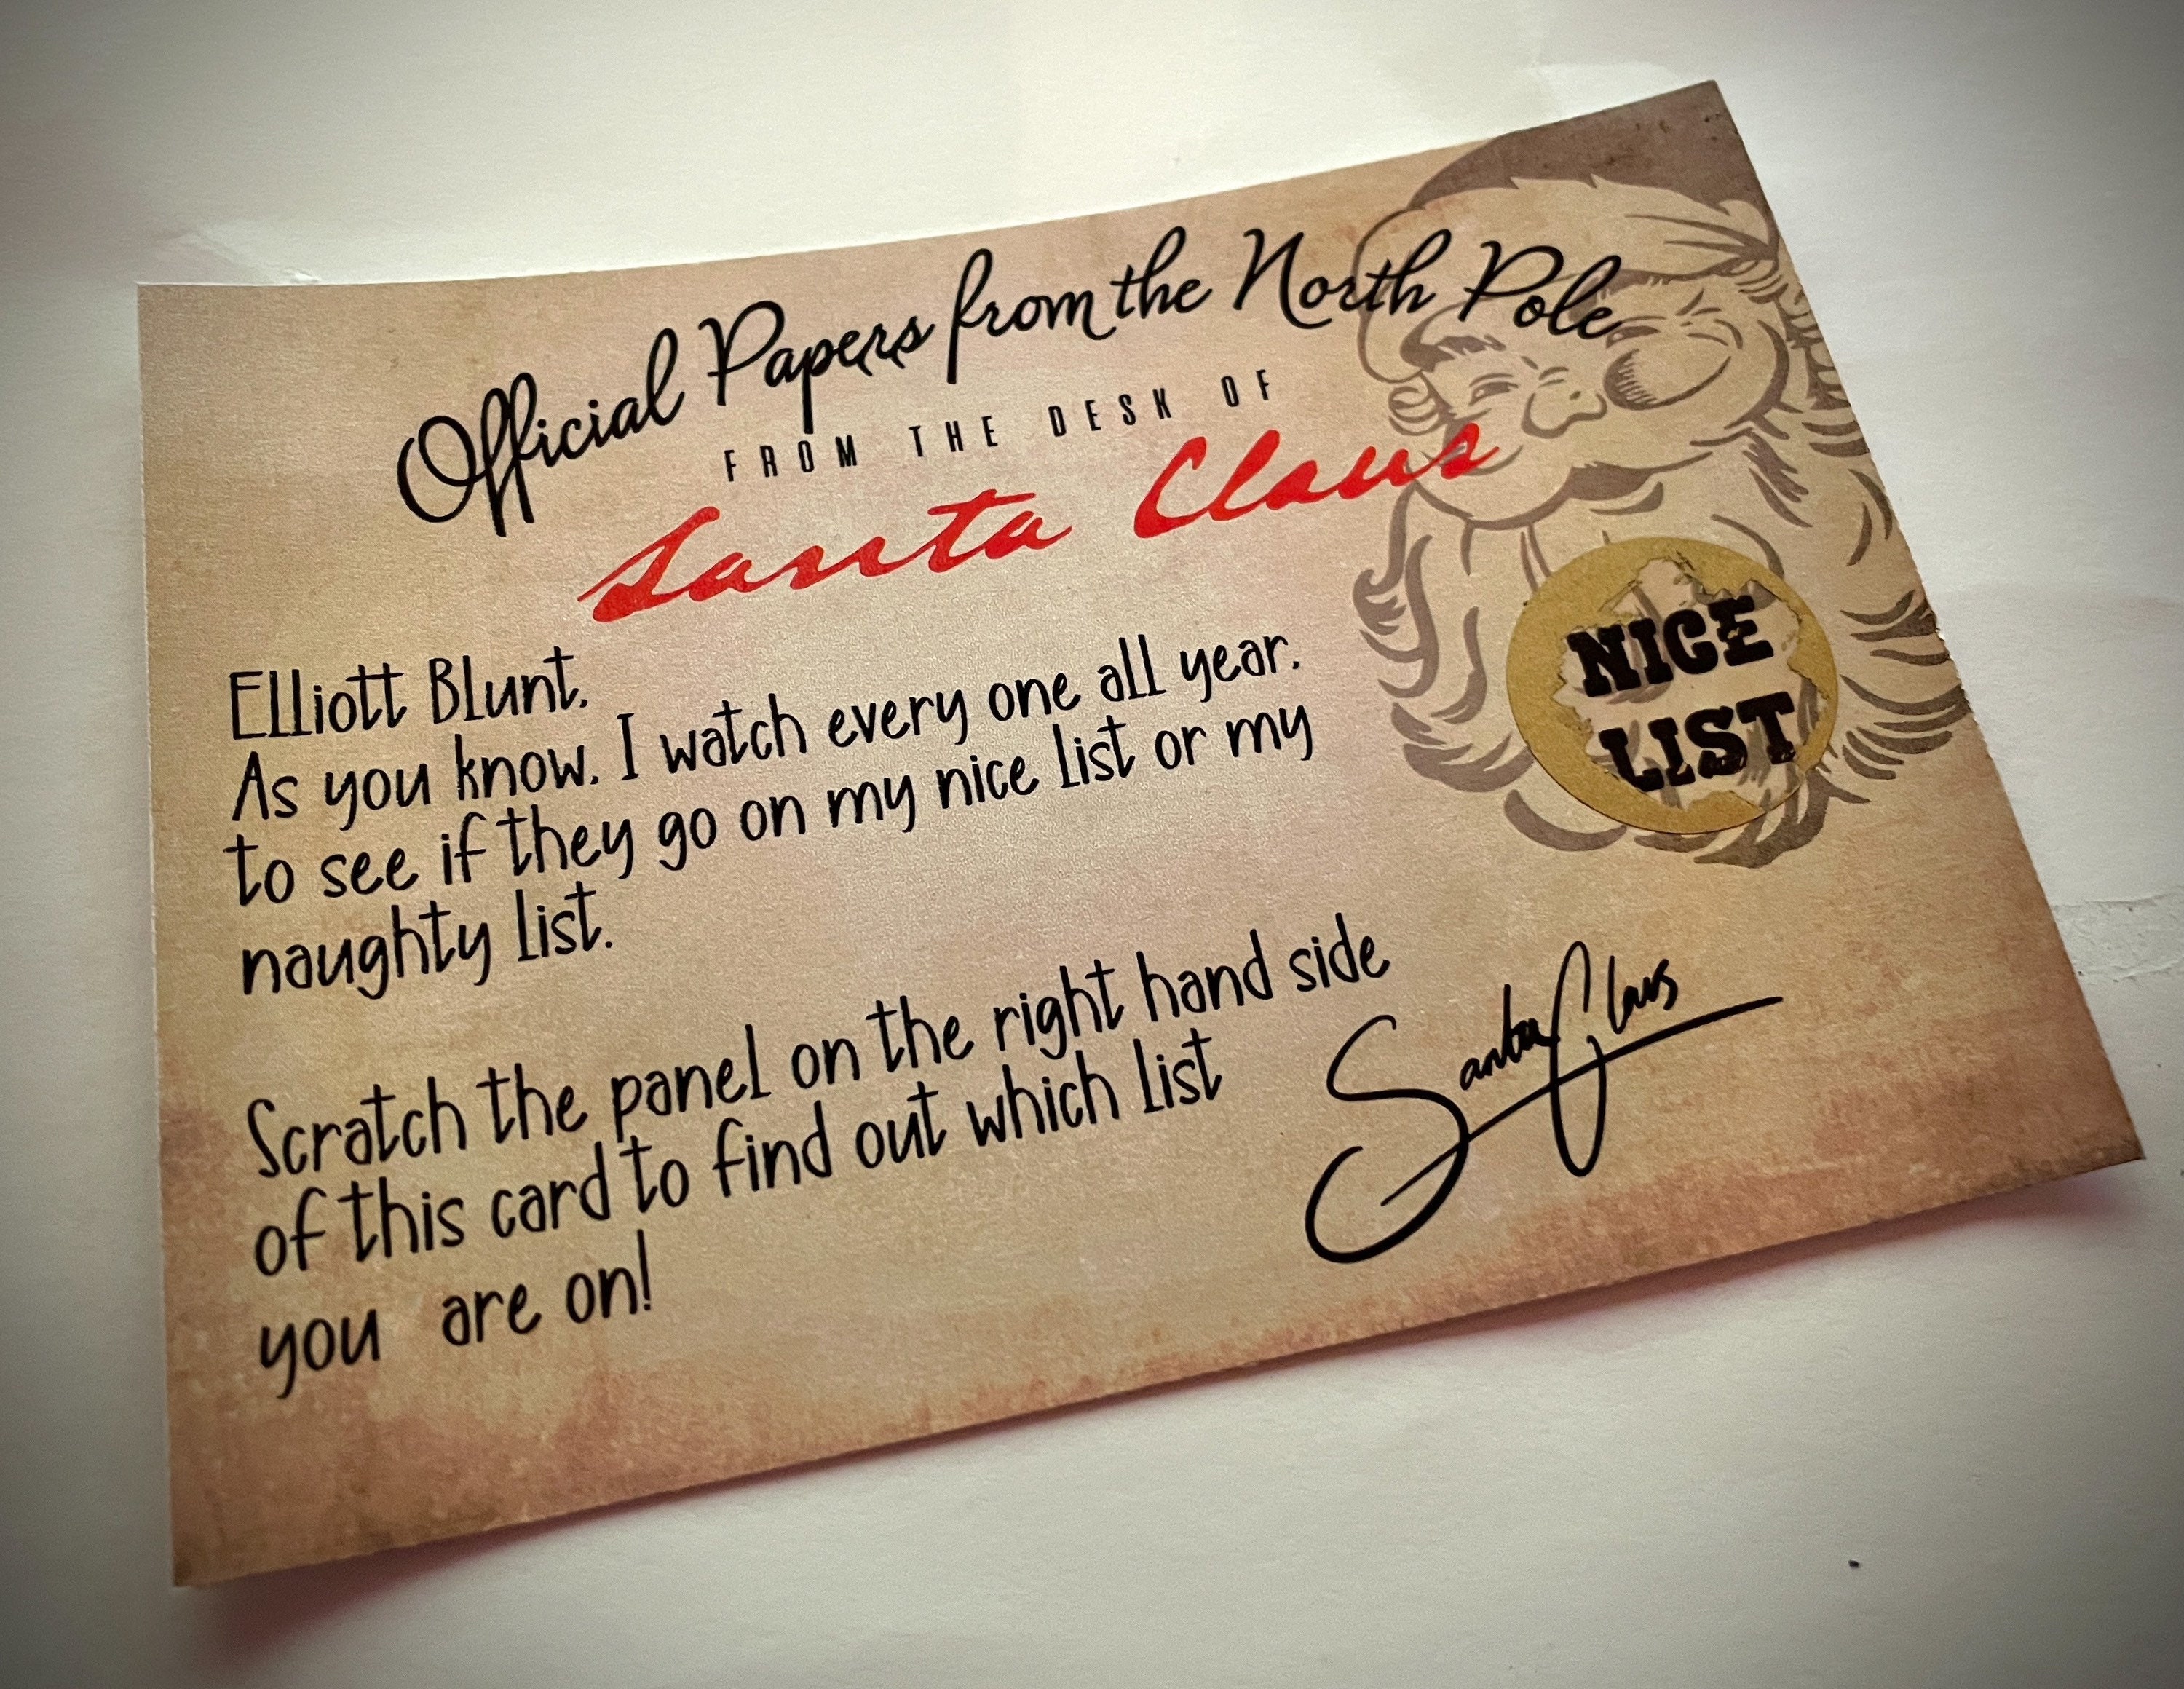 Official Papers from the North Pole
FROM THE DESK OF
Santa Claus
Elliott Blunt,
As you know, I watch every one all year,
to see if they go on my nice list or my
naughty list.
Scratch the panel on the right hand side
of this card to find out which list
you are on!
NICE
LIST
Santa Claus